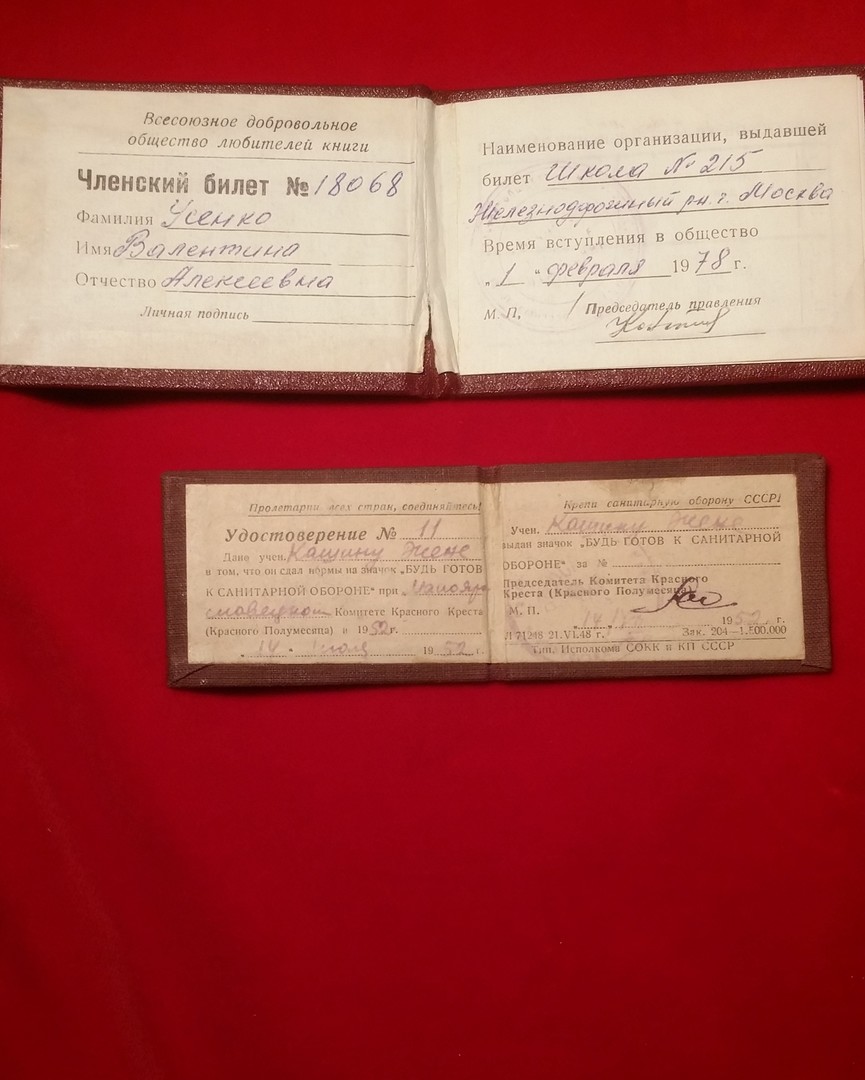 Всесоюзное добровольное
общество любителей книги
Членский билет №18068
Фамилия Усенко
Имя Валентина
Отчество Алексеевна
Личная подпись
Наименование организации, выдавшей
билет Школа № 215
Железнодорожный р-н. г. Москва
Время вступления в общество
„1 “ февраля 1978 г.
М. П. Председатель правления
Пролетарии всех стран, соединяйтесь!
Удостоверение № 11
Дано учен. Кашину Жене
в том, что он сдал нормы на значок „БУДЬ ГОТОВ
К САНИТАРНОЙ ОБОРОНЕ“ при Малояро
славецком Комитете Красного Креста
(Красного Полумесяца) в 1952 г.
„ 14 “ июля 1952 г.
Крепи санитарную оборону СССР!
Учен. Кашину Жене
выдан значок „БУДЬ ГОТОВ К САНИТАРНОЙ
ОБОРОНЕ“ за №
Председатель Комитета Красного
Креста (Красного Полумесяца)
М. П.
„14“ 1952 г.
Л 71248 21.VI.48 г. Зак. 204—1.500.000
Тип. Исполкома СОКК и КП СССР